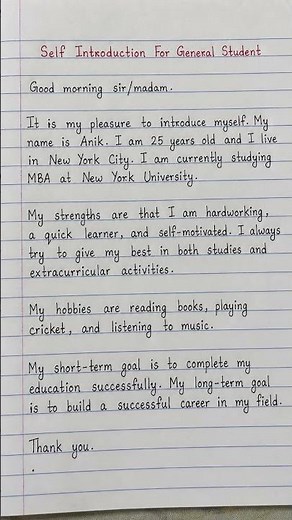 Self Introduction For General Student
Good morning sir/madam.
It is my pleasure to introduce myself. My
name is Anik. I am 25 years old and I live
in New York City. I am currently studying
MBA at New York University.
My strengths are that I am hardworking,
a quick learner, and self-motivated. I always
try to give my best in both studies and
extracurricular activities.
My hobbies are reading books, playing
cricket, and listening to music.
My short-term goal is to complete my
education successfully. My long-term goal
is to build a successful career in my field.
Thank you.
.